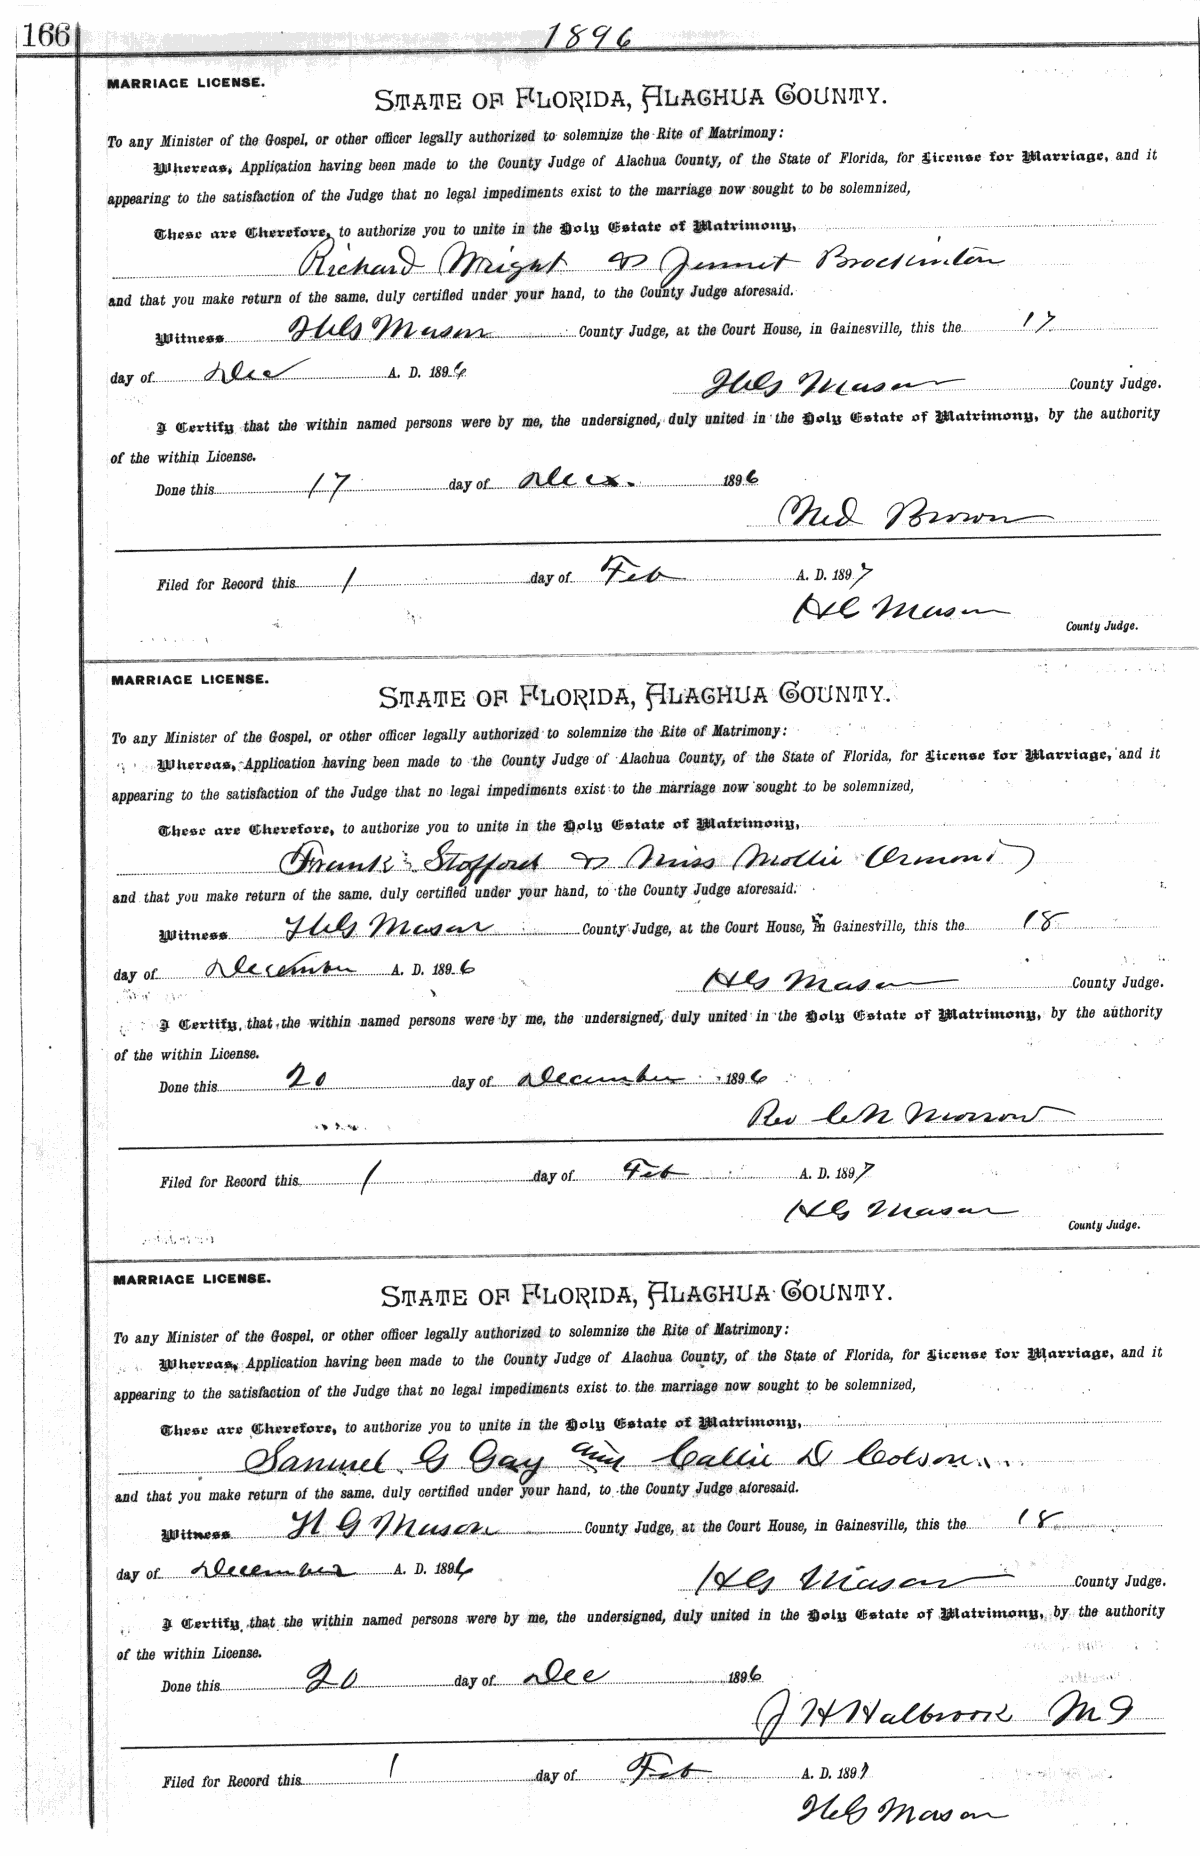 166
1896
MARRIAGE LICENSE.
STATE OF FLORIDA, ALACHUA COUNTY.
To any Minister of the Gospel, or other officer legally authorized to solemnize the Rite of Matrimony:
Whereas, Application having been made to the County Judge of Alachua County, of the State of Florida, for License for Marriage, and it
appearing to the satisfaction of the Judge that no legal impediments exist to the marriage now sought to be solemnized,
These are Therefore, to authorize you to unite in the Holy Estate of Matrimony,
Richard Wright & Jennet Brockinton
and that you make return of the same, duly certified under your hand, to the County Judge aforesaid.
Witness H G Mason County Judge, at the Court House, in Gainesville, this the 17
day of Dec A. D. 1896
H G Mason County Judge.
I Certify that the within named persons were by me, the undersigned, duly united in the Holy Estate of Matrimony, by the authority
of the within License.
Done this 17 day of Dec. 1896
Ned Brown
Filed for Record this 1 day of Feb A. D. 1897
H G Mason
County Judge.
MARRIAGE LICENSE.
STATE OF FLORIDA, ALACHUA COUNTY.
To any Minister of the Gospel, or other officer legally authorized to solemnize the Rite of Matrimony:
Whereas, Application having been made to the County Judge of Alachua County, of the State of Florida, for License for Marriage, and it
appearing to the satisfaction of the Judge that no legal impediments exist to the marriage now sought to be solemnized,
These are Therefore, to authorize you to unite in the Holy Estate of Matrimony,
Frank Stofford & Miss Mollie Ormond
and that you make return of the same, duly certified under your hand, to the County Judge aforesaid.
Witness H G Mason County Judge, at the Court House, in Gainesville, this the 18
day of December A. D. 1896
H G Mason County Judge.
I Certify, that the within named persons were by me, the undersigned, duly united in the Holy Estate of Matrimony, by the authority
of the within License.
Done this 20 day of December 1896
Rev C N Morrow
Filed for Record this 1 day of Feb A. D. 1897
H G Mason
County Judge.
MARRIAGE LICENSE.
STATE OF FLORIDA, ALACHUA COUNTY.
To any Minister of the Gospel, or other officer legally authorized to solemnize the Rite of Matrimony:
Whereas, Application having been made to the County Judge of Alachua County, of the State of Florida, for License for Marriage, and it
appearing to the satisfaction of the Judge that no legal impediments exist to the marriage now sought to be solemnized,
These are Therefore, to authorize you to unite in the Holy Estate of Matrimony,
Samuel G Gay and Callie D Colson
and that you make return of the same, duly certified under your hand, to the County Judge aforesaid.
Witness H G Mason County Judge, at the Court House, in Gainesville, this the 18
day of December A. D. 1896
H G Mason County Judge.
I Certify, that the within named persons were by me, the undersigned, duly united in the Holy Estate of Matrimony, by the authority
of the within License.
Done this 20 day of Dec 1896
J H Halbrook M G
Filed for Record this 1 day of Feb A. D. 1897
H G Mason